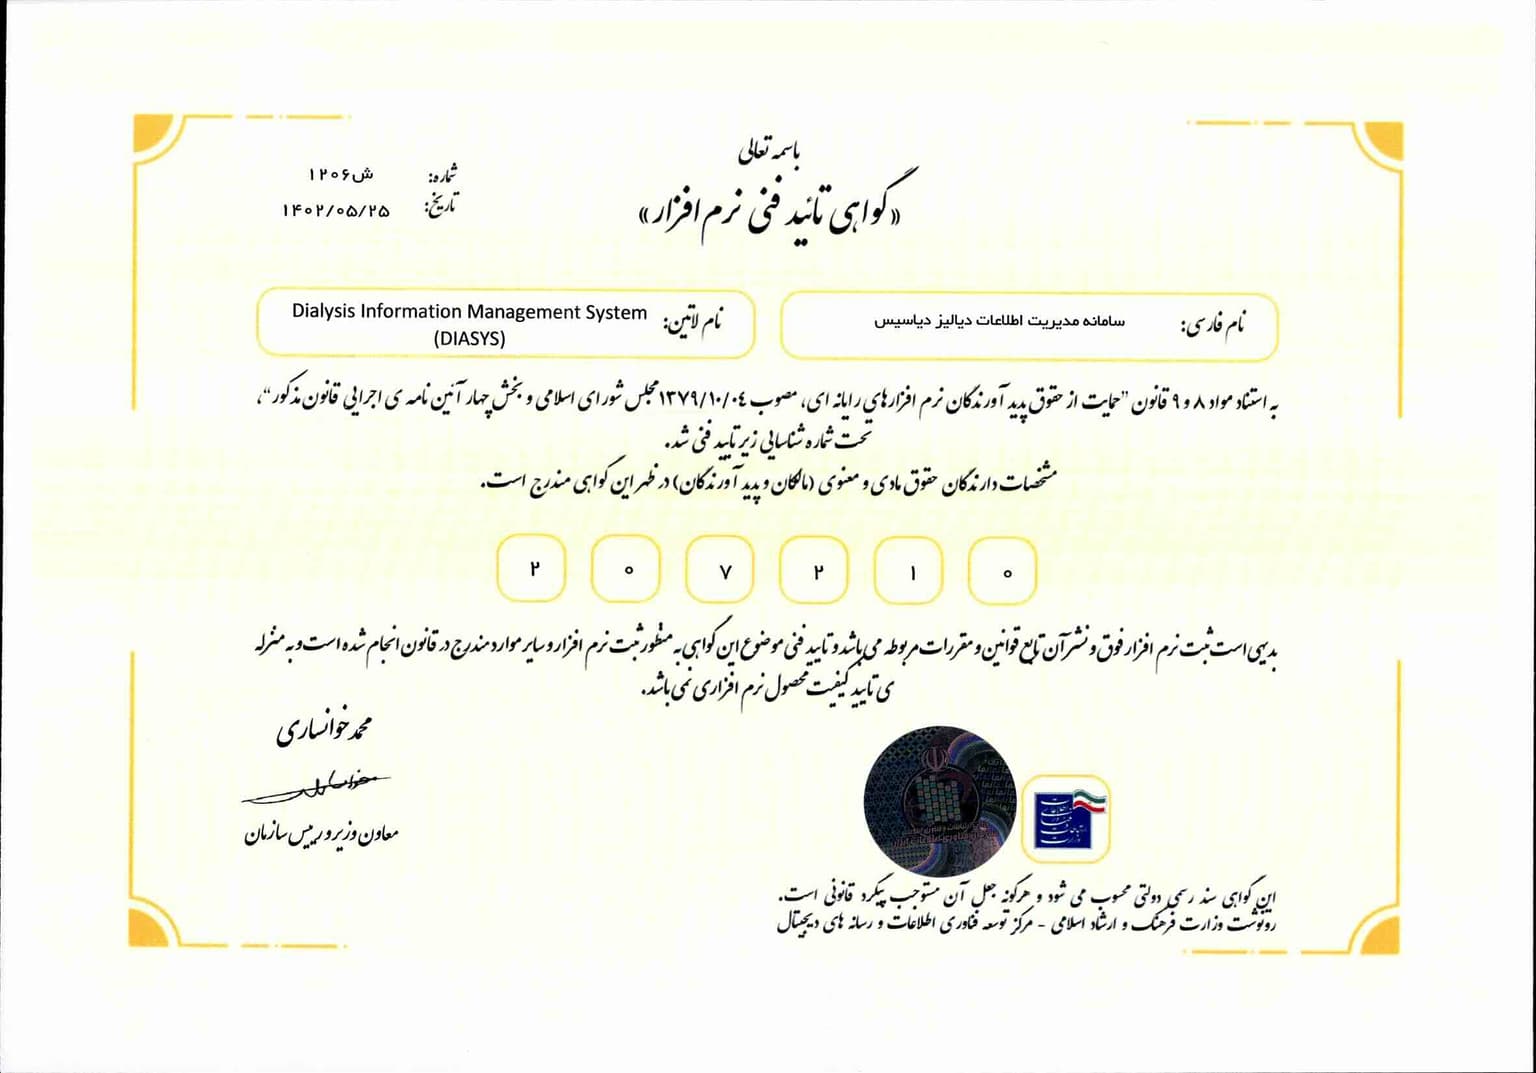 باسمه تعالی
«گواهی تائید فنی نرم افزار»
شماره: ش۱۲۰۶
تاریخ: ۱۴۰۲/۰۵/۲۵
نام فارسی: سامانه مدیریت اطلاعات دیالیز دیاسیس
نام لاتین: Dialysis Information Management System
(DIASYS)
به استناد مواد ۸ و ۹ قانون "حمایت از حقوق پدید آورندگان نرم افزارهای رایانه ای، مصوب ۱۳۷۹/۱۰/۰۴ مجلس شورای اسلامی و بخش چهار آئین نامه ی اجرایی قانون مذکور"،
تحت شماره شناسایی زیر تایید فنی شد.
مشخصات دارندگان حقوق مادی و معنوی (مالکان و پدید آورندگان) در ظهر این گواهی مندرج است.
۲ ۰ ۷ ۲ ۱ ۰
بدیهی است ثبت نرم افزار فوق و نشر آن تابع قوانین و مقررات مربوطه می باشد و تایید فنی موضوع این گواهی به منظور ثبت نرم افزار و سایر موارد مندرج در قانون انجام شده است و به منزله
ی تایید کیفیت محصول نرم افزاری نمی باشد.
محمد خوانساری
معاون وزیر و رییس سازمان
این گواهی سند رسمی دولتی محسوب می شود و هرگونه جعل آن مستوجب پیگرد قانونی است.
رونوشت وزارت فرهنگ و ارشاد اسلامی - مرکز توسعه فناوری اطلاعات و رسانه های دیجیتال